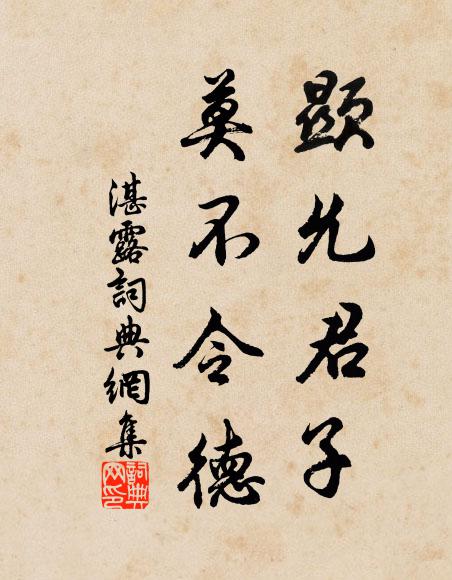 顯允君子
莫不令德
湛露詞典網集
詞典網印